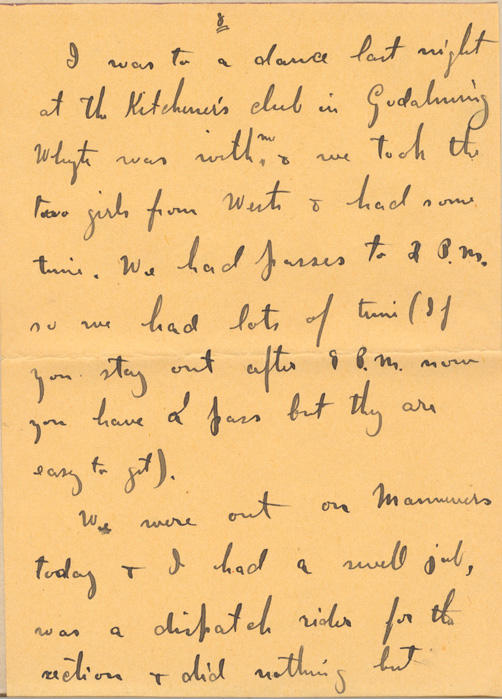 8
I was to a dance last night
at the Kitchener's club in Godalming
Whyte was with m. & we took the
two girls from West & had some
time. We had passes to 2 P.M.
so we had lots of time (If
you stay out after 8 P.M. now
you have a pass but they are
easy to get).
We were out on Manuvers
today & I had a swell job,
was a dispatch rider for the
section & did nothing but